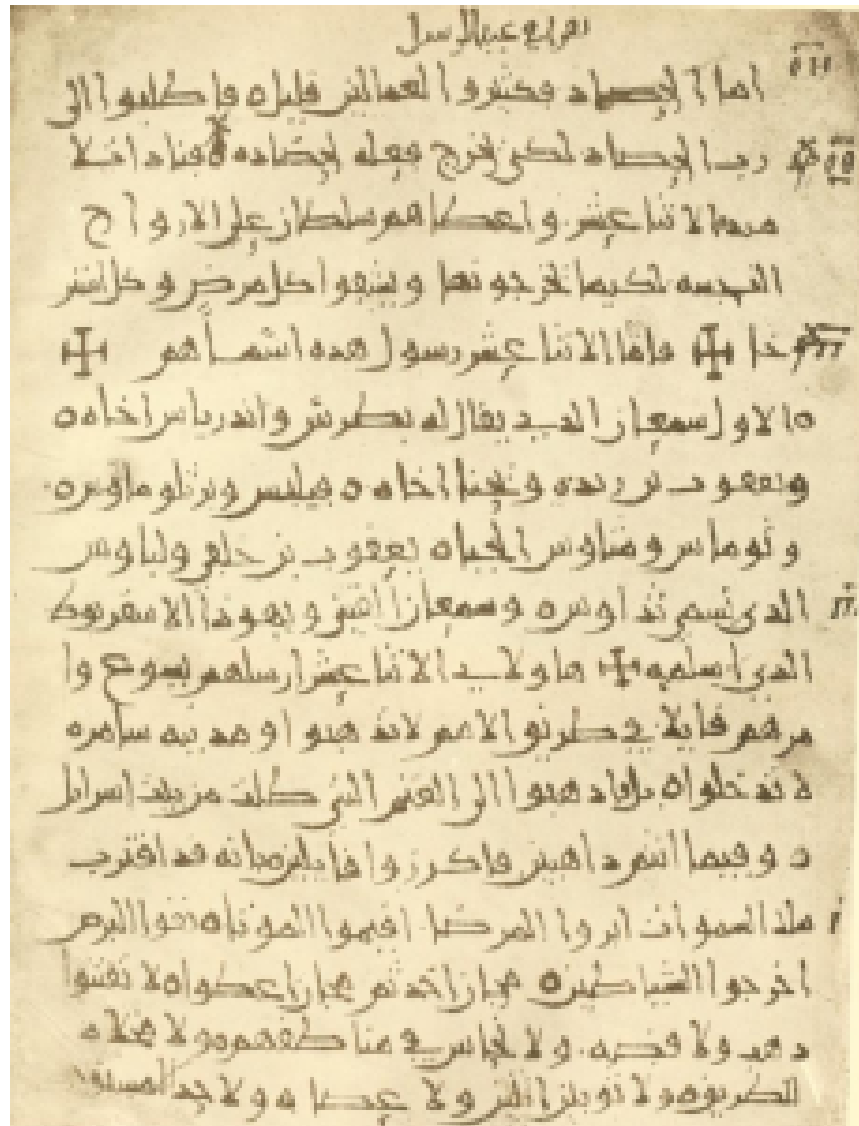 عيد الرسل
اما الحصاد فكثير والعمالين قليل ه فاطلبوا الى
رب الحصاد لكي يخرج فعله لحصاده فناد اتلا
ميده الاثنا عشر واعطاهم سلطان على الارواح
النجسه لكيما يخرجونها ويشفوا كل مرض وكل استر
خا ✠ فاما الاثنا عشر رسول هذه اسماهم ✠
ه الاول سمعان الذي يقال له بطرس واندرياس اخاه ه
ويعقوب بن زبدي ويحنا اخاه ه فيلبس وبرثلوماوس ه
وتوماس ومتاوس الجباه يعقوب بن حلفي ولباوس
الذي تسمى تداوس ه وسمعان القنن ويهوذا الاسخريوط
الذي اسلمه ✠ هاولاي الاثنا عشر ارسلهم يسوع وا
مرهم قايلا في طريق الامم لا تذهبوا ومدينه سامره
لا تدخلوا ه بل اذهبوا الى الغنم التي ضلت من بيت اسرايل
ه وفيما انتم ذاهبين فاكرزوا قايلين بانه قد اقترب
ملك السموات ابروا المرضا اقيموا الموتا ه نقوا البرص
اخرجوا الشياطين ه مجان اخذتم مجان اعطوا ه لا تقتنوا
ذهب ولا فضه ولا نحاس في مناطقكم ولا مخلاه
للطريق ه ولا ثوبين اثنين ولا عصا ه ولا حدا